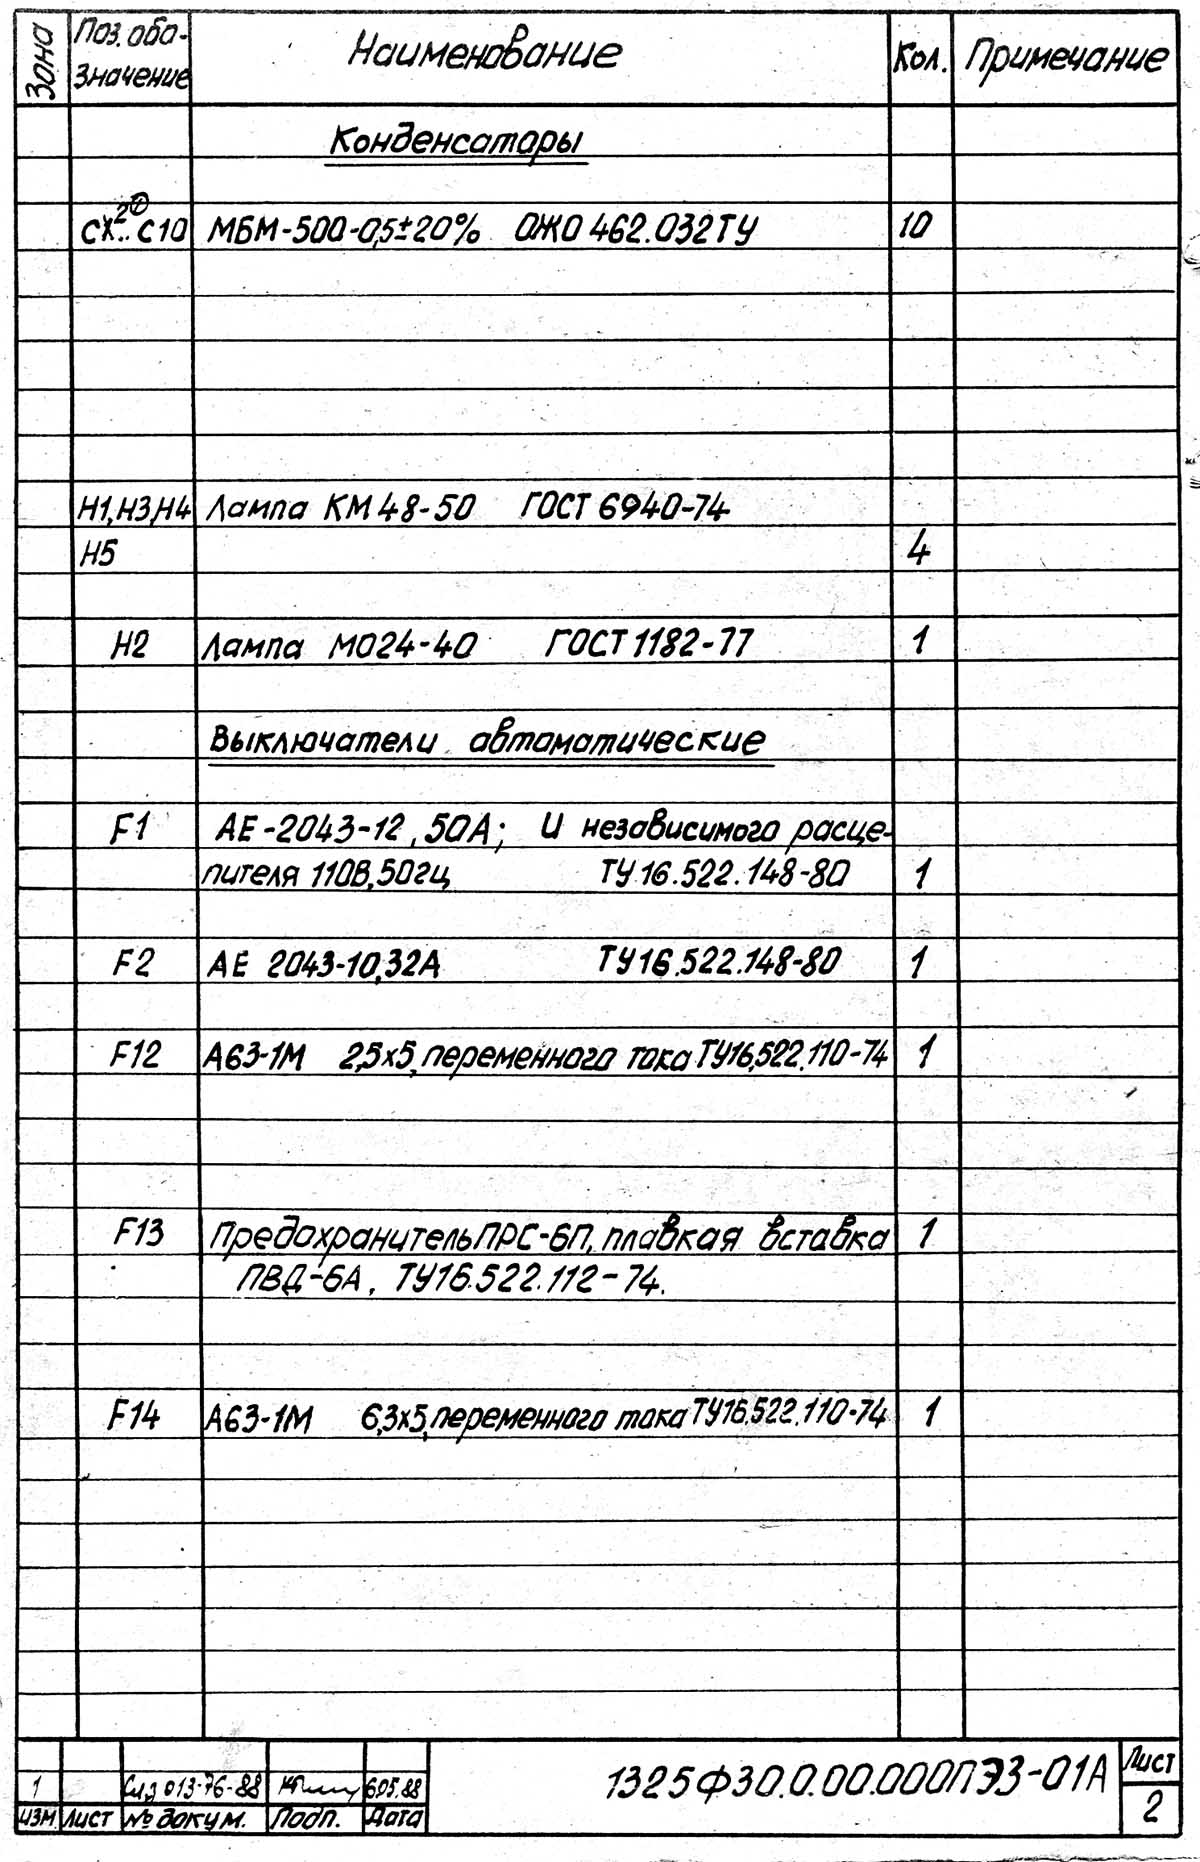 Зона
Поз. обо-
значение
Наименование
Кол.
Примечание
Конденсаторы
2 1
С1...С10 МБМ-500-0,5±20% ОЖО 462.032ТУ 10
Н1,Н3,Н4 Лампа КМ48-50 ГОСТ 6940-74
Н5 4
Н2 Лампа МО24-40 ГОСТ 1182-77 1
Выключатели автоматические
F1 АЕ-2043-12, 50А; И независимого расце-
пителя 110В,50гц ТУ16.522.148-80 1
F2 АЕ 2043-10,32А ТУ16.522.148-80 1
F12 А63-1М 2,5х5, переменного тока ТУ16.522.110-74 1
F13 Предохранитель ПРС-6П, плавкая вставка 1
ПВД-6А, ТУ16.522.112-74.
F14 А63-1М 6,3х5, переменного тока ТУ16.522.110-74 1
1 013-76-88 6.05.88
ИЗМ. Лист № докум. Подп. Дата
1325Ф30.0.00.000ПЭ3-01А
Лист
2